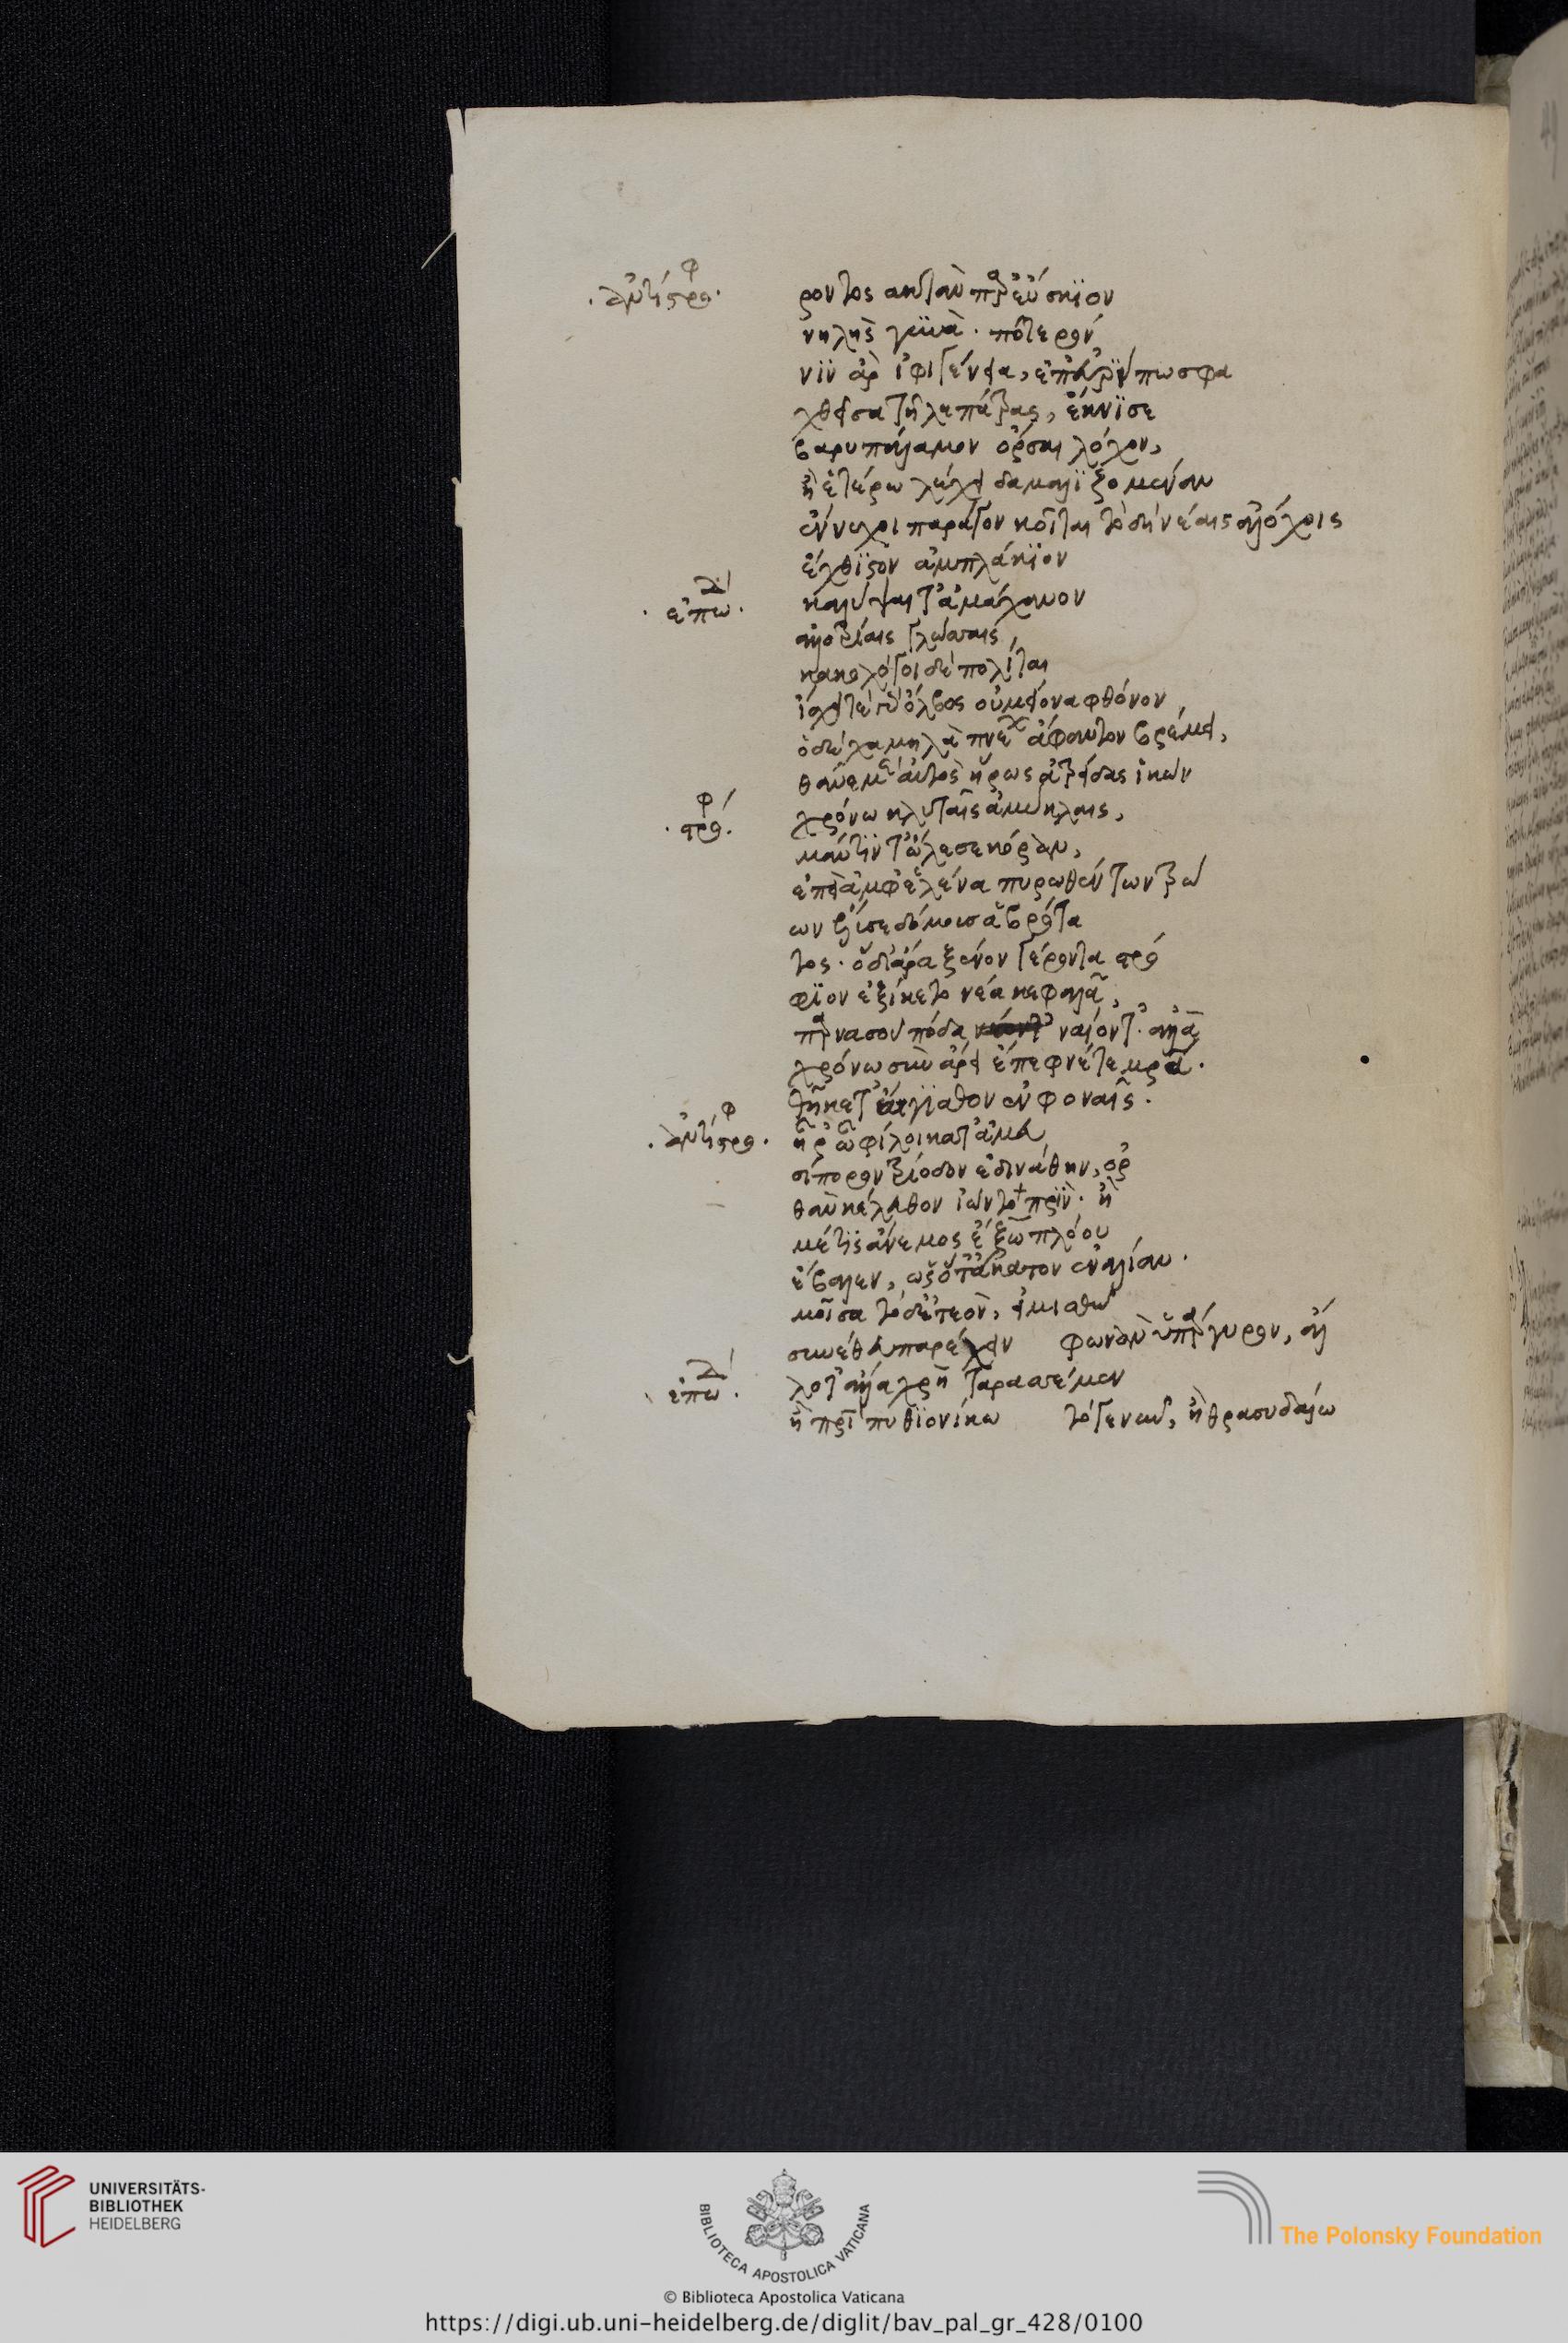 ἀντιστροφ ροντος ἀκτὰν παρ' εὔσκιον
νηλὴς γυνά. πότερον
νὶν ἂρ ἰφιγένεια, ἐπ' εὐρίπω σφα
χθεῖσα τῆλε πάτρας, ἔκνισε
βαρυπάλαμον ὄρσαι χόλον,
ἢ ἑτέρω λέχει δαμαλιζομέναν
ἔννυχοι πάραγον κοῖται τὸ δὴ νέαις ἀλόχοις
ἔχθιστον ἀμπλάκιον
ἐπωδ. καλύψαι τ' ἀμάχανον
ἀλλοτρίαις γλώσσαις,
κακολόγοι δὲ πολίται
ἴσχει τε γὰρ ὄλβος οὐ μείονα φθόνον
ὁ δὲ χαμηλὰ πνέων ἄφαντον βρέμει,
θάνε μὲν αὐτὸς ἥρως ἀτρείδας ἱκὼν
στροφ. χρόνω κλυταῖς ἀμύκλαις,
μάντιν τ' ὤλεσε κόραν,
ἐπεὶ ἀμφ' ἑλένα πυρωθέντων τρώ
ων ἔλυσε δόμους ἁβρότα
τος. ὁ δ' ἄρα ξένον γέροντα στρό
φιον ἐξίκετο νέα κεφαλὰ,
παρνασοῦ πόδα ναίοντ'. ἀλλὰ
χρόνω σὺν ἄρει ἔπεφνέ τε μρα.
θῆκε τ' αἴγισθον ἐν φοναῖς.
ἀντιστροφ. ἦρ' ὦ φίλοι κατ' ἀμευ
σίπορον τρίοδον ἐδινάθην, ὀρ
θὰν κέλευθον ἰὼν τὸ πρὶν. ἢ
μέ τις ἄνεμος ἔξω πλόου
ἔβαλεν, ὡς ὅτ' ἄκατον ἐναλίαν.
μοῖσα τὸ δὲ τεὸν, εἰ μισθῶ
συνέθευ παρέχειν φωνὰν ὑπάργυρον, ἄλ
ἐπωδ. λοτ' ἄλλα χρὴ ταρασσέμεν
ἢ πρὶ πυθιονίκω τό γε νυν, ἢ θρασυδαίω
UNIVERSITÄTS-
BIBLIOTHEK
HEIDELBERG
BIBLIOTECA APOSTOLICA VATICANA
The Polonsky Foundation
© Biblioteca Apostolica Vaticana
https://digi.ub.uni-heidelberg.de/diglit/bav_pal_gr_428/0100